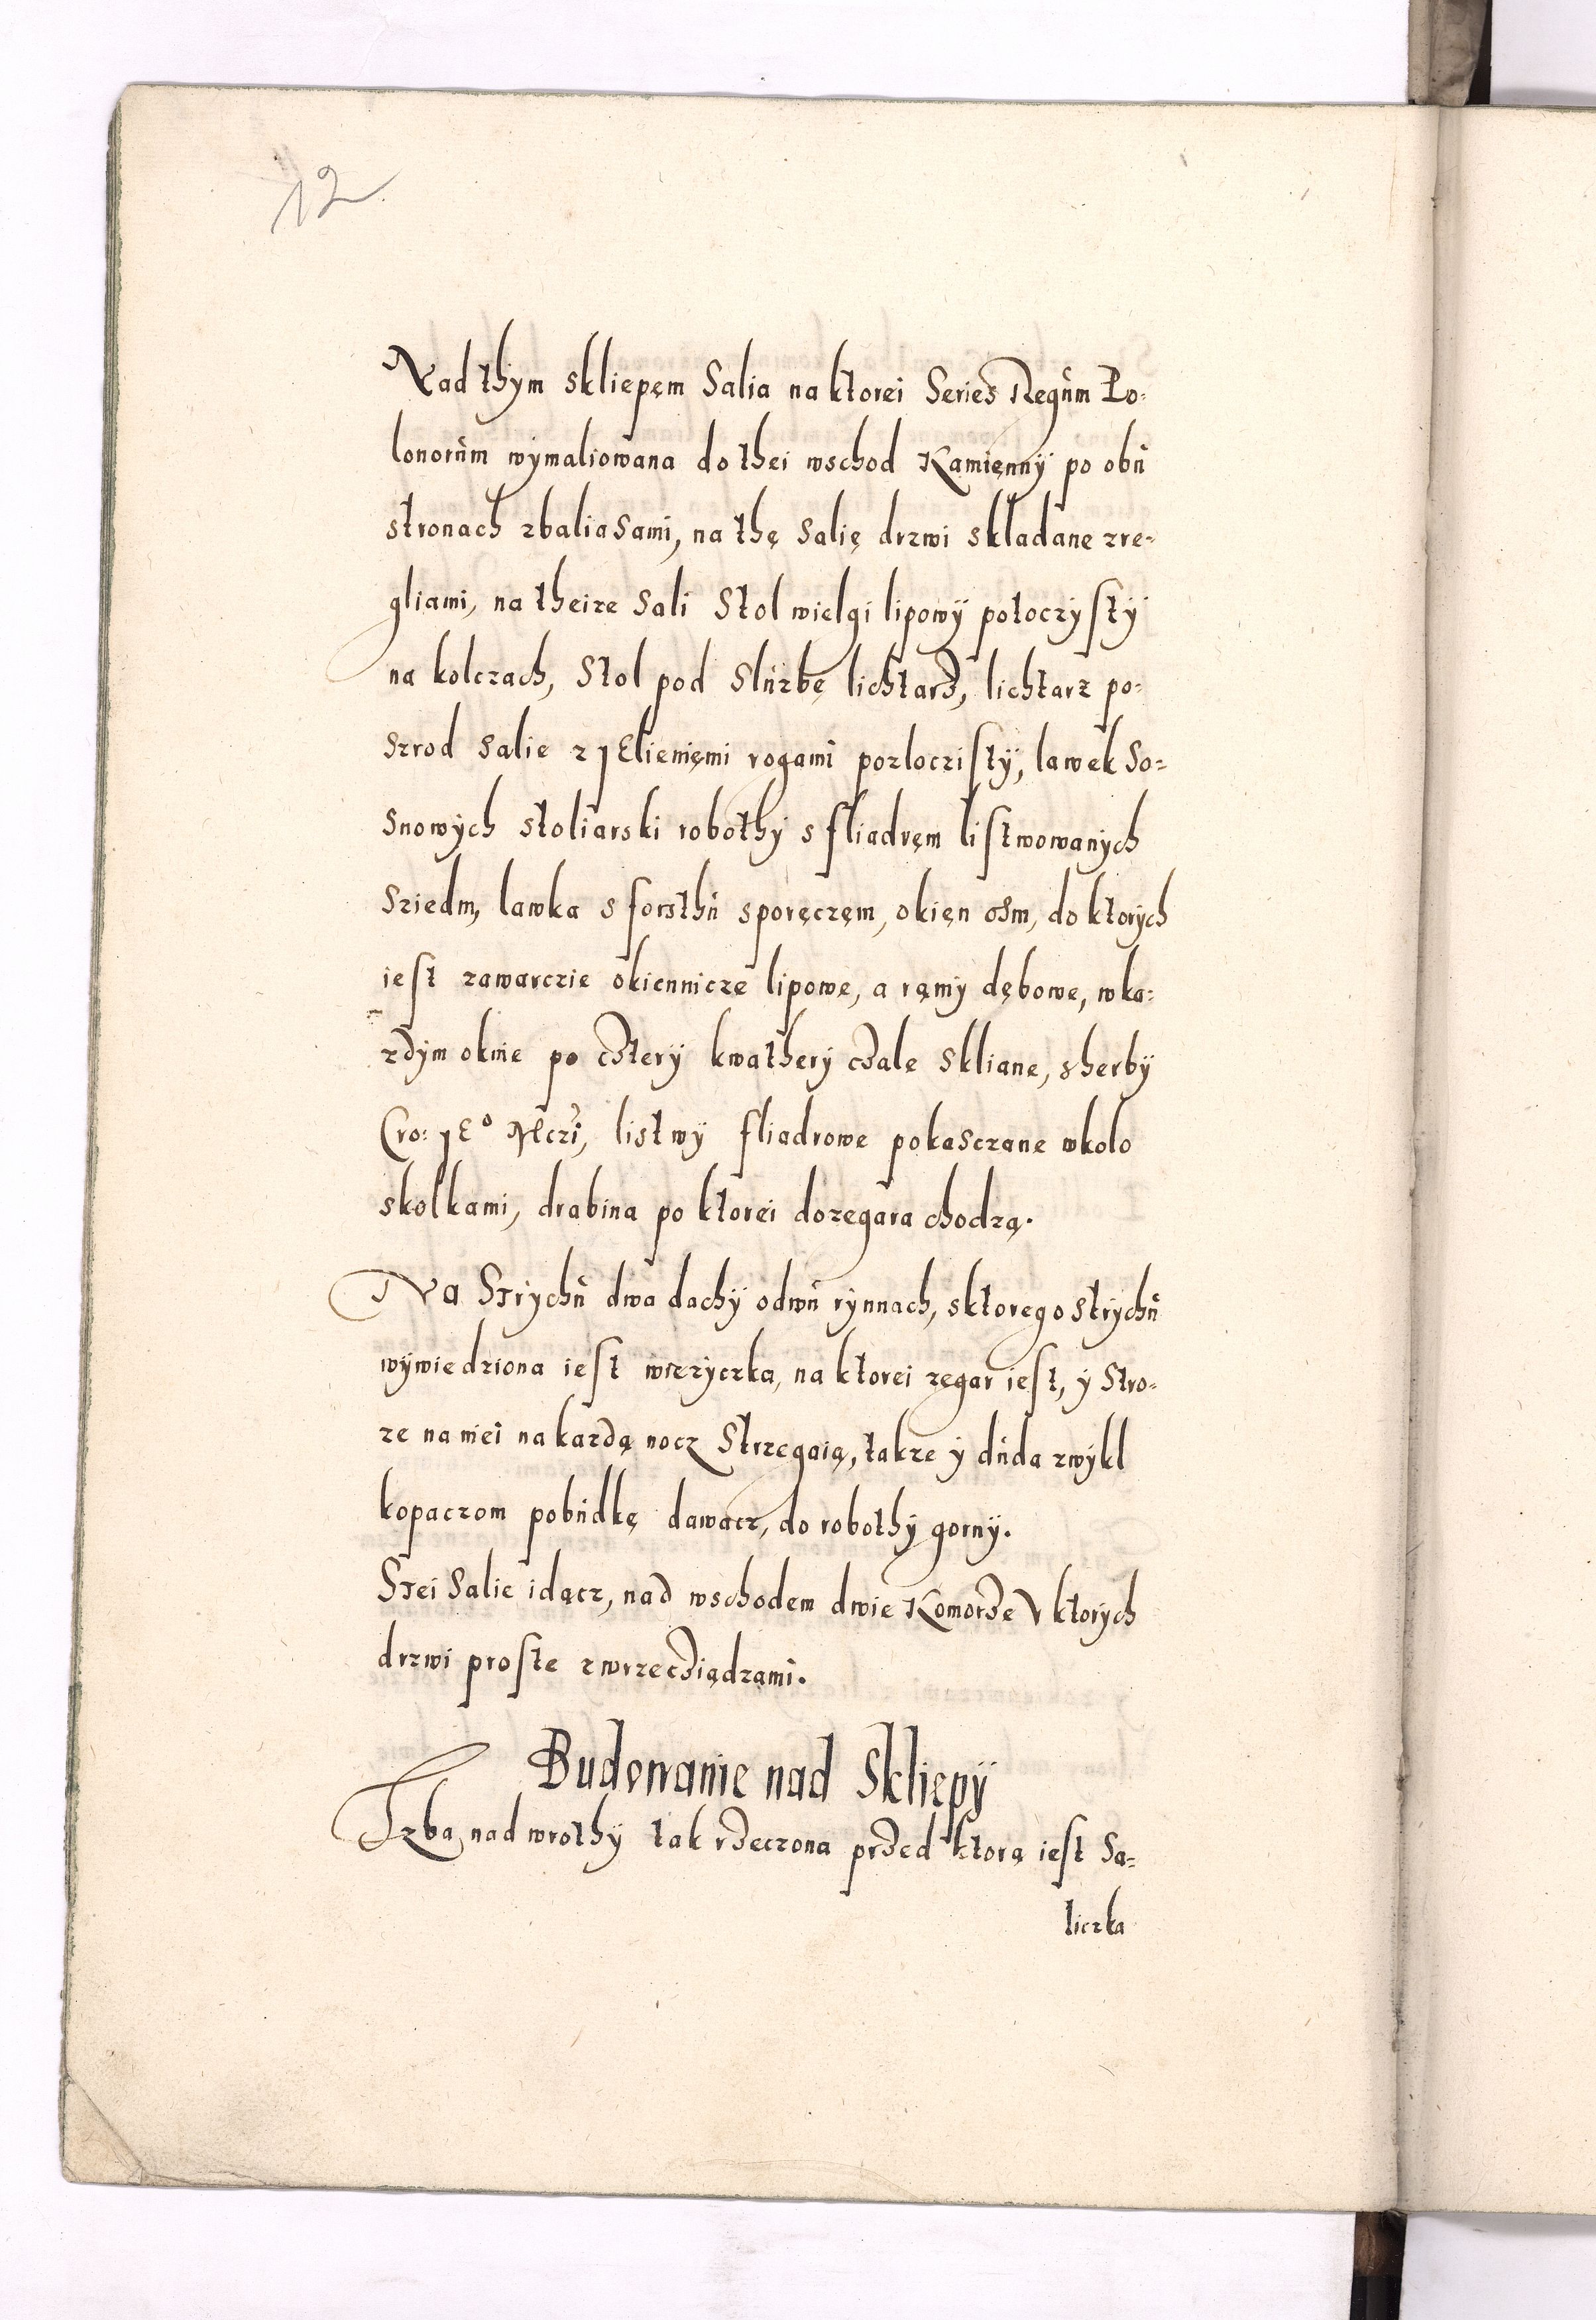 12
Nad thÿm skliepęm Salia na ktorei Series Regům Po=
lonorům wÿmaliowana do thei wschod Kamięnnÿ po obů
stronach zbaliasami, na thę Salię drzwi składane zre=
gliami, na theize Sali Stol wielgi lipowÿ potoczÿstÿ
na kolczach, Stol pod Slůzbę lichtarz, lichtarz po=
szrod Salie z jElienięmi rogami pozloczistÿ, lawek So=
snowÿch stoliarski robothÿ s fliadręm listwowanÿch
Sziedm, lawka s forsthů sporęczęm, okięn osm, do ktorÿch
iest zawarczie okiennicze lipowe, a ramÿ dębowe, wka=
zdÿm oknie po cztterÿ kwatherÿ czale Skliane, s herbÿ
Cro: jEº Mczi, listwÿ fliadrowe pokasczane wkolo
skolkami, drabina po ktorei dozegara chodzą.
Na Strÿchů dwa dachÿ odwů rÿnnach, sktorego strÿchů
wÿwiedziona iest wiezÿczka, na ktorei zegar iest, ÿ Stro=
ze na niei na kazdą nocz Strzegaią, takze ÿ důda zwÿkl
kopaczom pobůdkę dawacz, do robothÿ gornÿ.
Stei Salie idącz, nad wschodem dwie Komorze V ktorÿch
drzwi proste zwrzecziądzami.
Budowanie nad Skliepÿ
Izba nad wrothÿ tak rzeczona przed ktorą iest Sa=
liczka